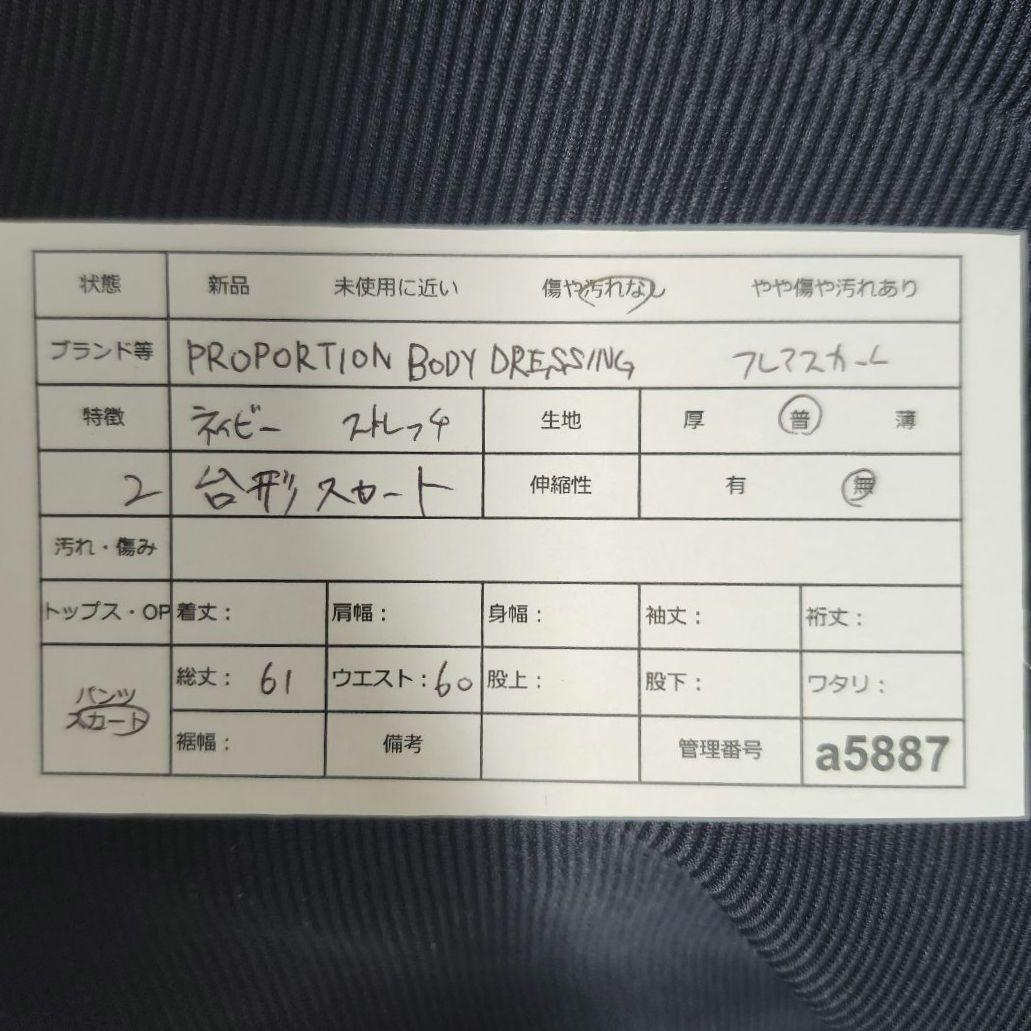 状態 新品 未使用に近い 傷や汚れなし やや傷や汚れあり
ブランド等 PROPORTION BODY DRESSING フレアスカート
特徴 ネイビー ストレッチ 生地 厚 普 薄
2 台形スカート 伸縮性 有 無
汚れ・傷み
トップス・OP 着丈： 肩幅： 身幅： 袖丈： 裄丈：
パンツ 総丈：61 ウエスト：60 股上： 股下： ワタリ：
スカート
裾幅： 備考 管理番号 a5887